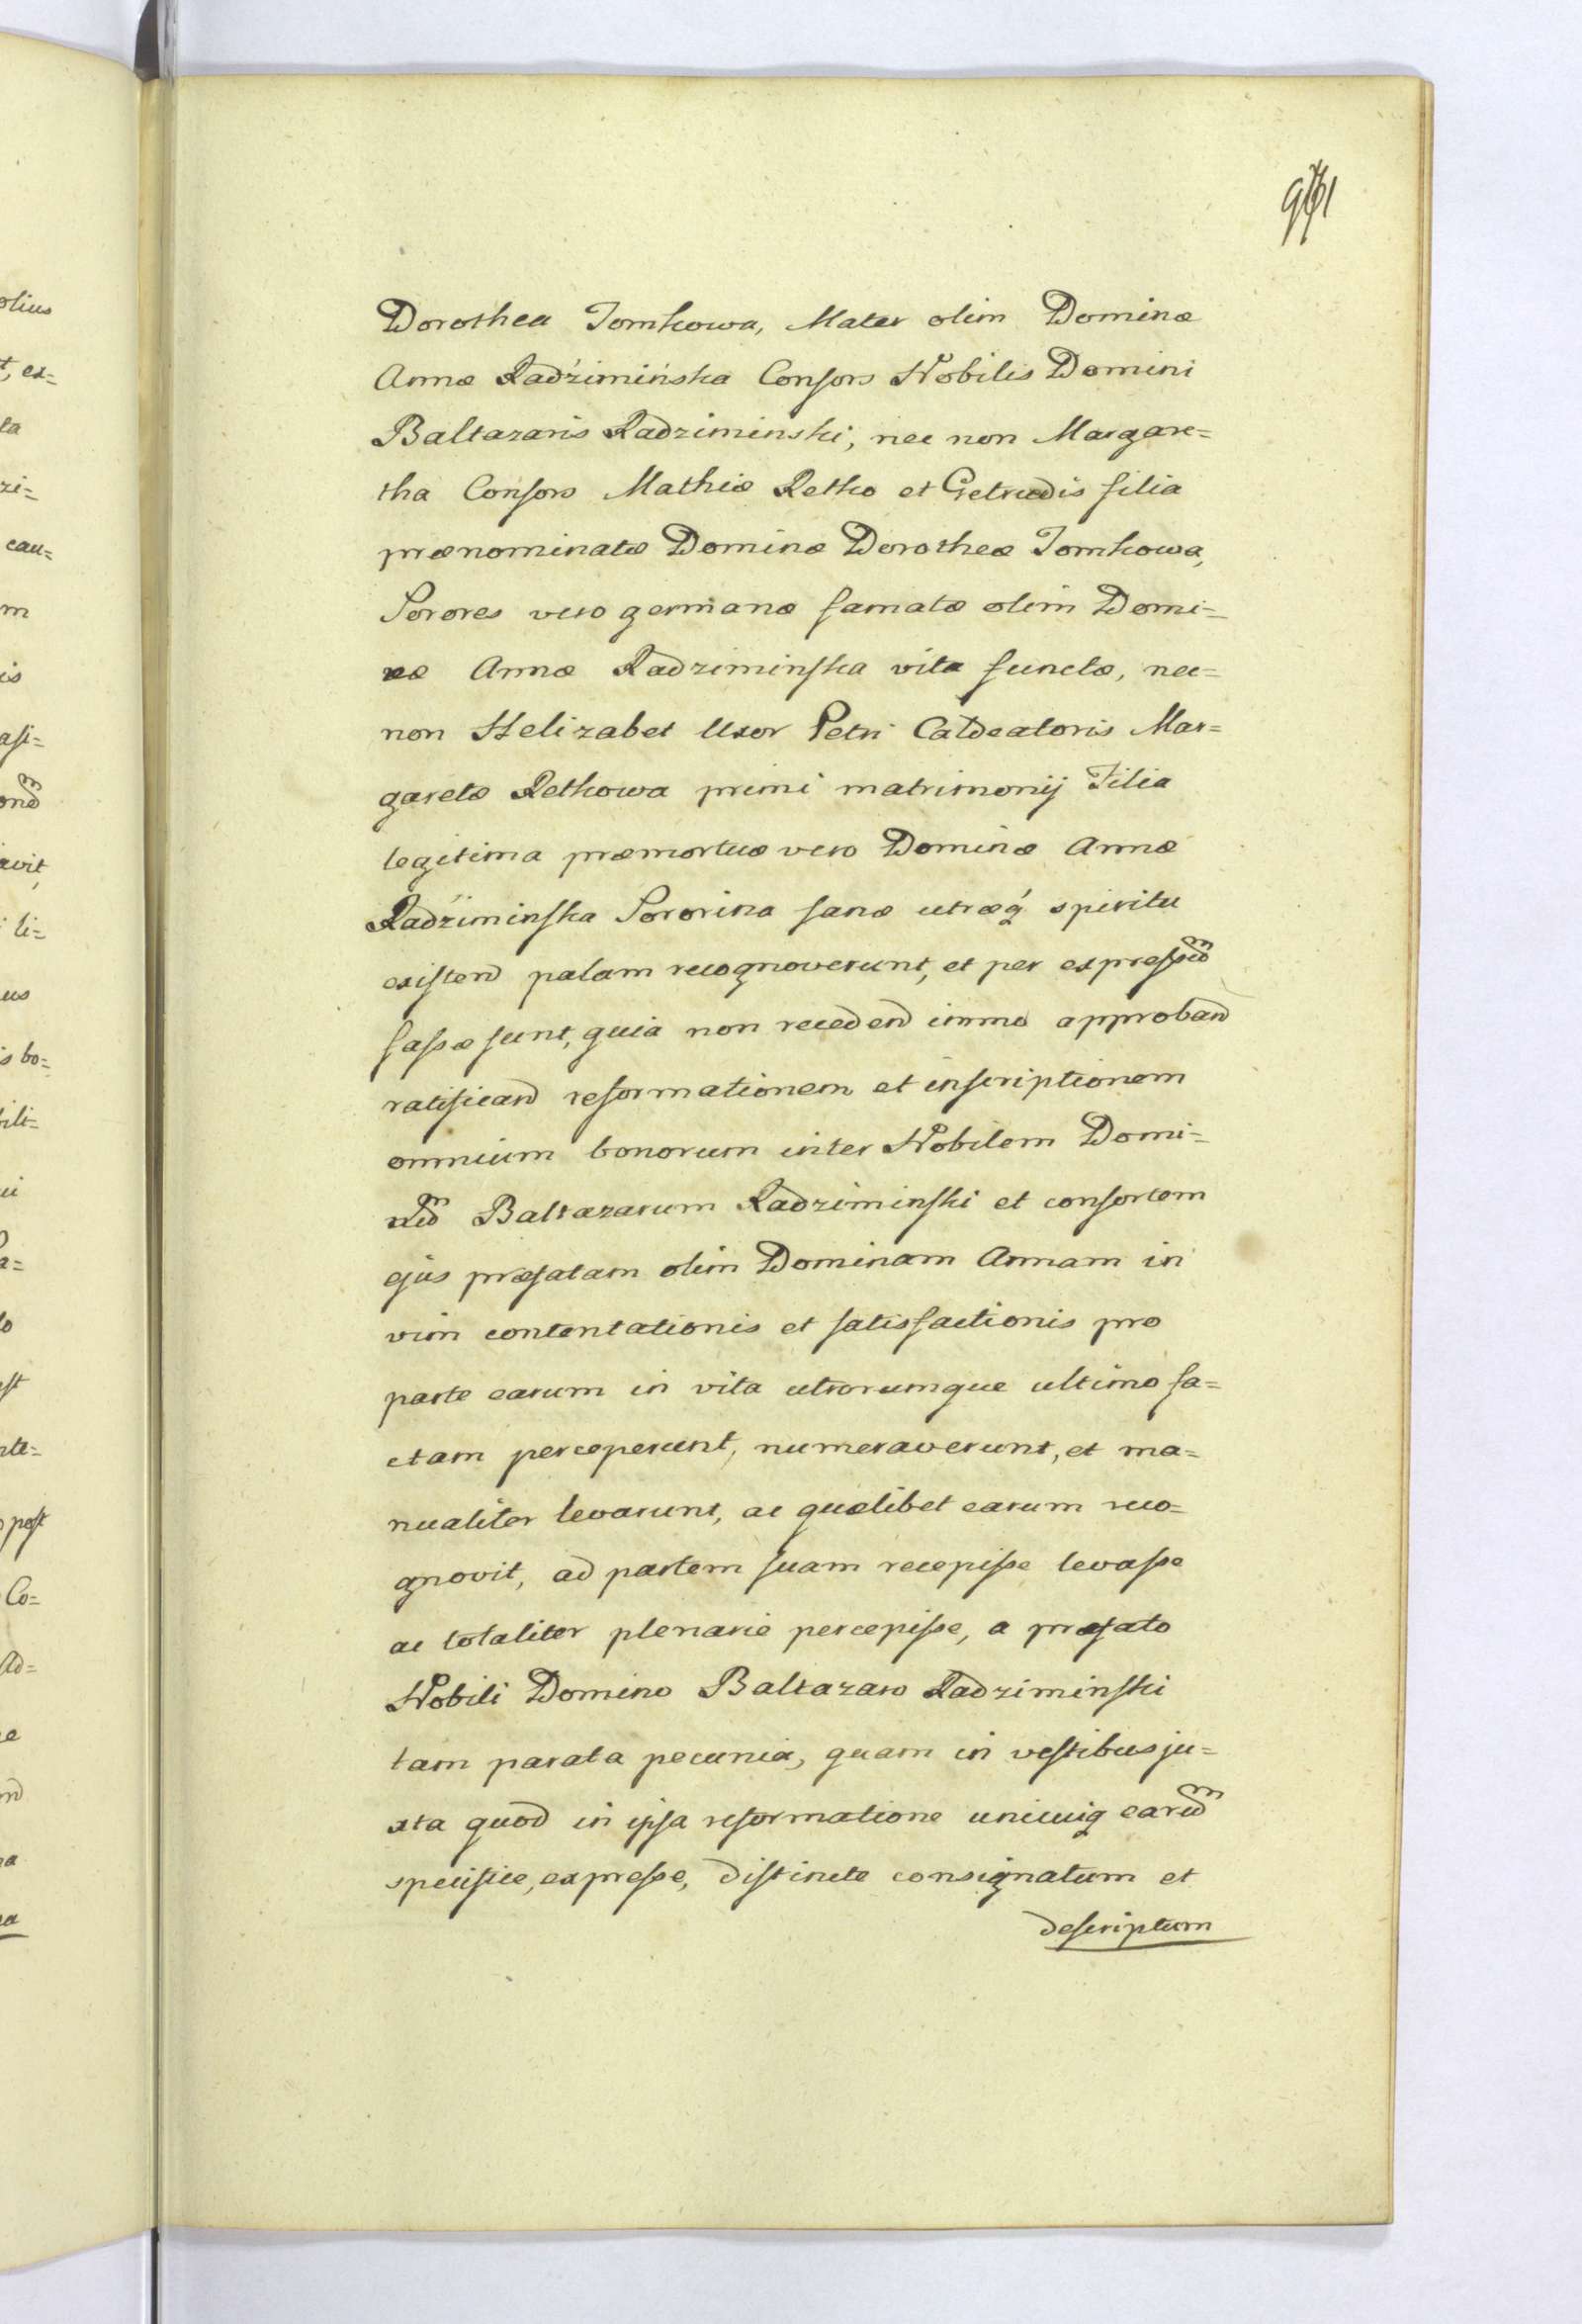 Dorothea Tomkowa, Mater olim Dominæ
Annæ Radźimińska Consors Nobilis Domini
Baltazaris Radziminski, nec non Margare=
tha Consors Mathiæ Retko et Getrudis filia
prænominatæ Dominæ Dorotheæ Tomkowa,
Sorores vero germanæ famatæ olim Domi=
næ Annæ Radziminska vita functæ, nec=
non Helizabet Uxor Petri Caldeatoris Mar=
garetæ Retkowa primi matrimonij Filia
legitima præmortuæ vero Dominæ Annæ
Radźiminska Sororina sanæ utræq́ spiritu
existend palam recognoverunt, et per expressum
fassæ sunt, quia non recedend immo approband
ratificand reformationem et inscriptionem
omnium bonorum inter Nobilem Domi=
num Baltazarum Radziminski et consortem
ejus præfatam olim Dominam Annam in
vim contentationis et satisfactionis pro
parte earum in vita utrorumque ultimo fa=
ctam perceperunt, numeraverunt, et ma=
nualiter levarunt, ac quælibet earum reco=
gnovit, ad partem suam recepisse levasse
ac totaliter plenarie percepisse, a præfato
Nobili Domino Baltazaro Radziminski
tam parata pecunia, quam in vestibus ju=
xta quod in ipsa reformatione unicuiq earum
specifice, expresse, distincte consignatum et
descriptum